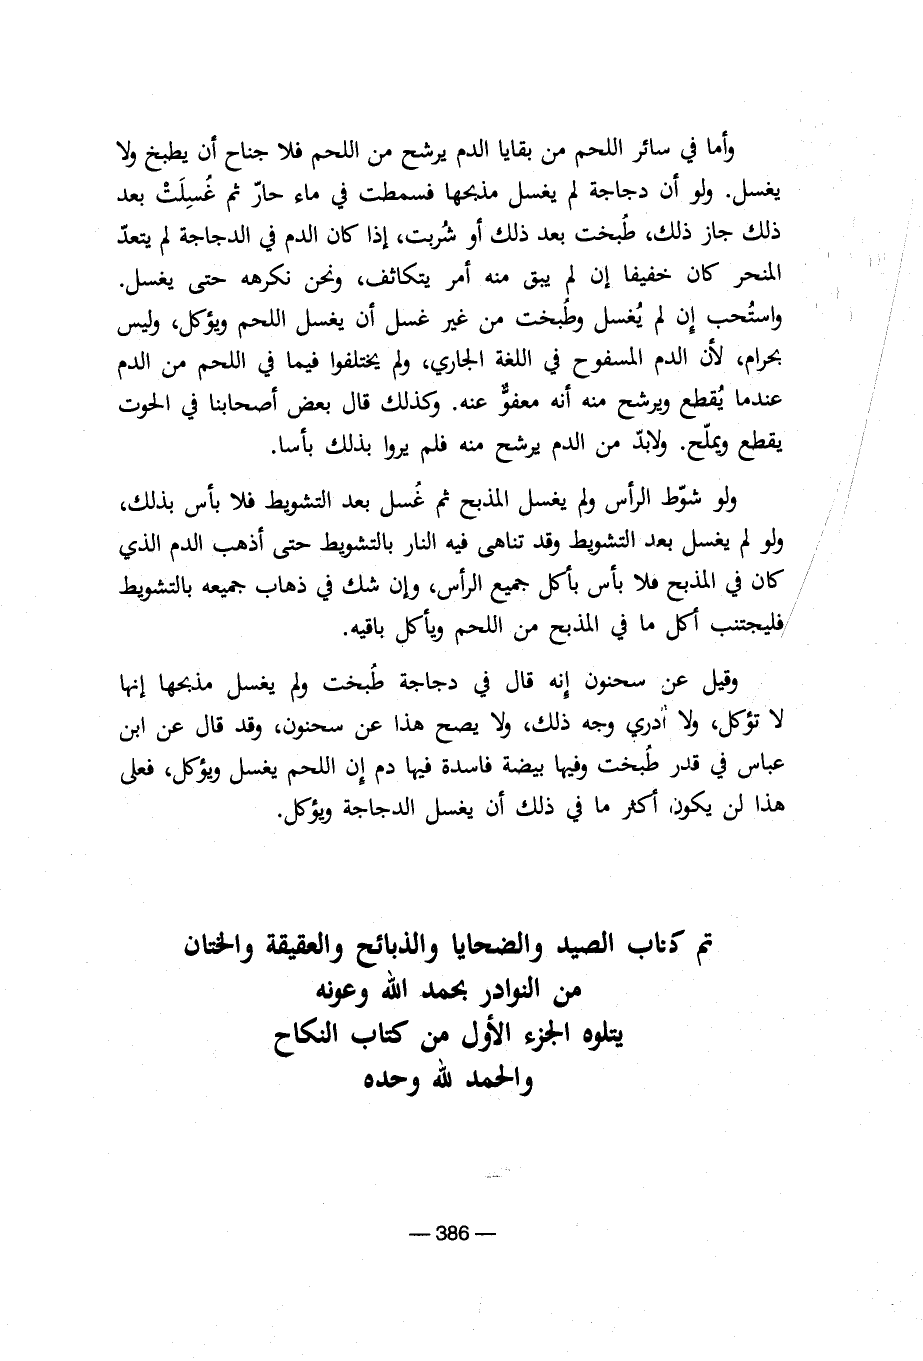 وأما في سائر اللحم من بقايا الدم يرشح من اللحم فلا جناح أن يطبخ ولا
يغسل. ولو أن دجاجة لم يغسل مذبحها فسمطت في ماء حارّ ثم غُسِلَتْ بعد
ذلك جاز ذلك، طُبخت بعد ذلك أو شُربت، إذا كان الدم في الدجاجة لم يتعدّ
المنحر كان خفيفا إن لم يبق منه أمر يتكاثف، ونحن نكرهه حتى يغسل.
واستُحب إن لم يُغسل وطُبخت من غير غسل أن يغسل اللحم ويؤكل، وليس
بحرام، لأن الدم المسفوح في اللغة الجاري، ولم يختلفوا فيما في اللحم من الدم
عندما يُقطع ويرشح منه أنه معفوٌّ عنه. وكذلك قال بعض أصحابنا في الحوت
يقطع ويملّح. ولابدّ من الدم يرشح منه فلم يروا بذلك بأسا.
ولو شوّط الرأس ولم يغسل المذبح ثم غُسل بعد التشويط فلا بأس بذلك،
ولو لم يغسل بعد التشويط وقد تناهى فيه النار بالتشويط حتى أذهب الدم الذي
كان في المذبح فلا بأس بأكل جميع الرأس، وإن شك في ذهاب جميعه بالتشويط
فليجتنب أكل ما في المذبح من اللحم ويأكل باقيه.
وقيل عن سحنون إنه قال في دجاجة طُبخت ولم يغسل مذبحها إنها
لا تؤكل، ولا أدري وجه ذلك، ولا يصح هذا عن سحنون، وقد قال عن ابن
عباس في قدر طُبخت وفيها بيضة فاسدة فيها دم إن اللحم يغسل ويؤكل، فعلى
هذا لن يكون أكثر ما في ذلك أن يغسل الدجاجة ويؤكل.
تم كتاب الصيد والضحايا والذبائح والعقيقة والختان
من النوادر بحمد الله وعونه
يتلوه الجزء الأول من كتاب النكاح
والحمد لله وحده
— 386 —